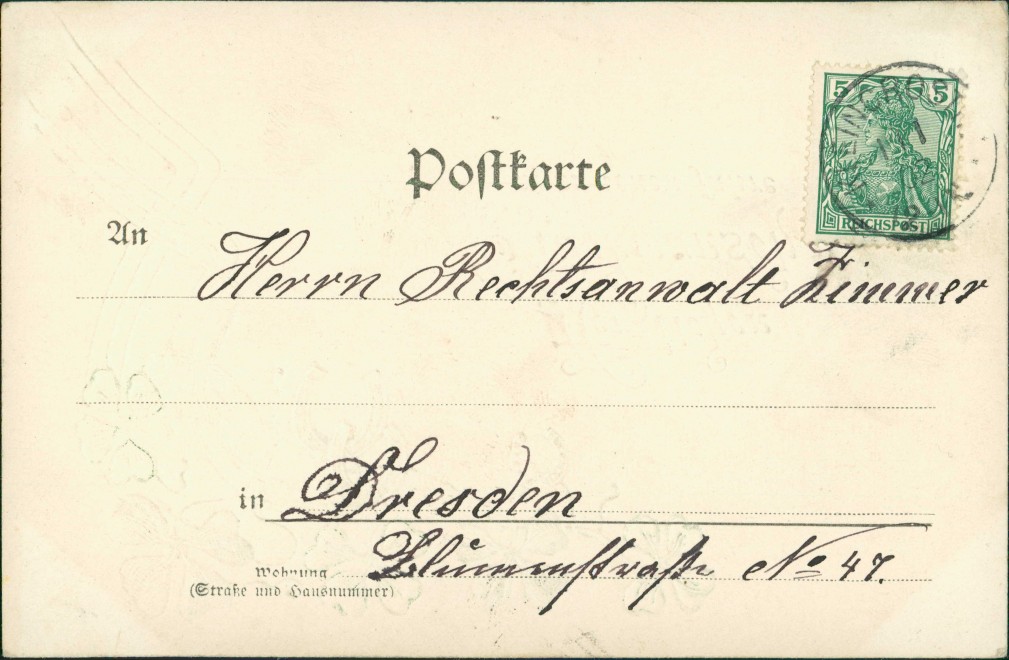 5 5
REICHSPOST
Postkarte
An
Herrn Rechtsanwalt Zimmer
in Dresden
Blumenstraße No 47.
Wohnung
(Straße und Hausnummer)